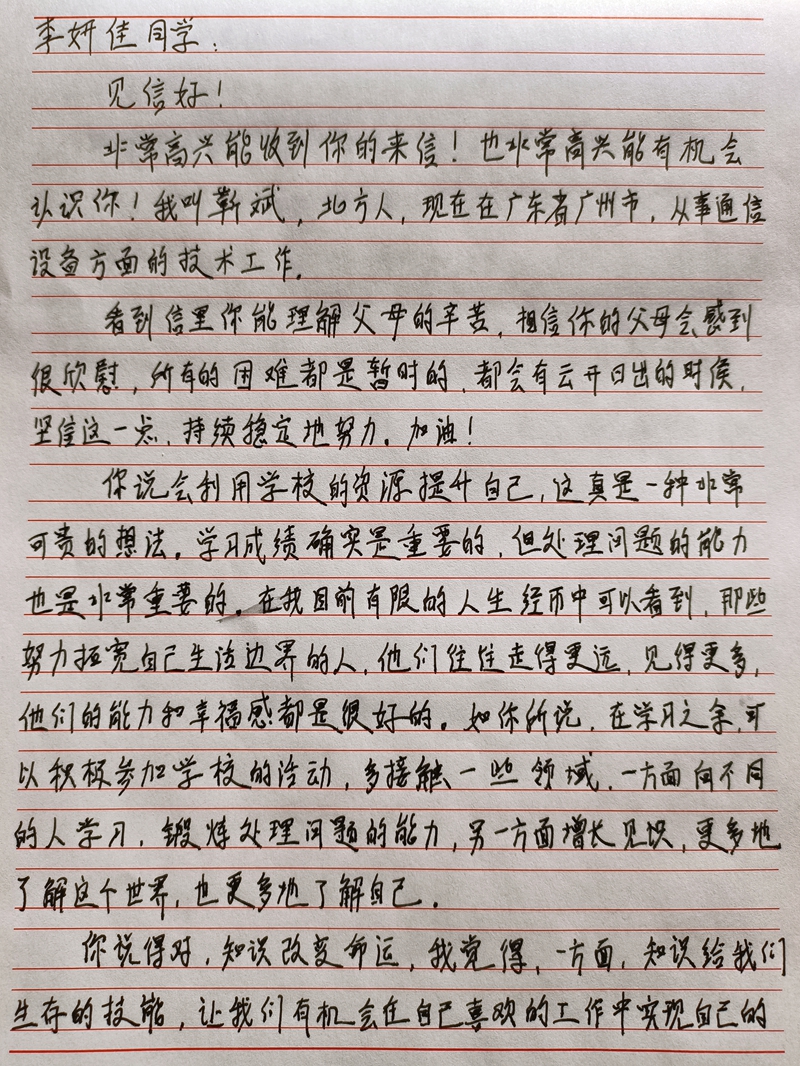 李妍佳同学：
见信好！
非常高兴能收到你的来信！也非常高兴能有机会
认识你！我叫靳斌，北方人，现在在广东省广州市，从事通信
设备方面的技术工作。
看到信里你能理解父母的辛苦，相信你的父母会感到
很欣慰，所有的困难都是暂时的，都会有云开日出的时候，
坚信这一点，持续稳定地努力。加油！
你说会利用学校的资源提升自己，这真是一种非常
可贵的想法。学习成绩确实是重要的，但处理问题的能力
也是非常重要的。在我目前有限的人生经历中可以看到，那些
努力拓宽自己生活边界的人，他们往往走得更远，见得更多，
他们的能力和幸福感都是很好的。如你所说，在学习之余，可
以积极参加学校的活动，多接触一些领域，一方面向不同
的人学习，锻炼处理问题的能力，另一方面增长见识，更多地
了解这个世界，也更多地了解自己。
你说得对，知识改变命运，我觉得，一方面，知识给我们
生存的技能，让我们有机会在自己喜欢的工作中实现自己的